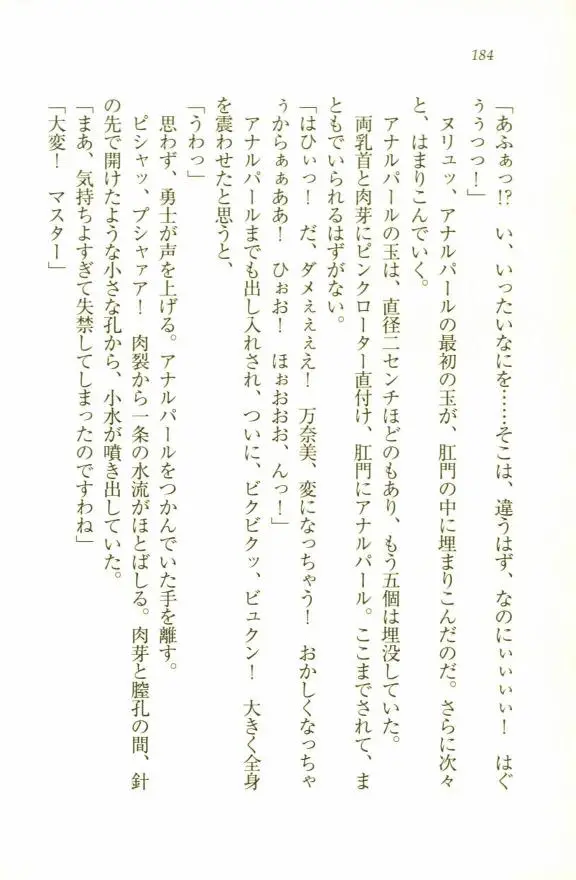 184
「あふぁっ!?　い、いったいなにを……そこは、違うはず、なのにぃぃぃぃ！　はぐ
ぅぅっっ！」
ヌリュッ、アナルパールの最初の玉が、肛門の中に埋まりこんだのだ。さらに次々
と、はまりこんでいく。
アナルパールの玉は、直径二センチほどのもあり、もう五個は埋没していた。
両乳首と肉芽にピンクローター直付け、肛門にアナルパール。ここまでされて、ま
ともでいられるはずがない。
「はひぃっ！　だ、ダメぇぇぇえ！　万奈美、変になっちゃう！　おかしくなっちゃ
ぅからぁぁああ！　ひぉお！　ほぉおおお、んっ！」
アナルパールまでも出し入れされ、ついに、ビクビクッ、ビュクン！　大きく全身
を震わせたと思うと、
「うわっ」
思わず、勇士が声を上げる。アナルパールをつかんでいた手を離す。
ピシャッ、プシャァア！　肉裂から一条の水流がほとばしる。肉芽と膣孔の間、針
の先で開けたような小さな孔から、小水が噴き出していた。
「まあ、気持ちよすぎて失禁してしまったのですわね」
「大変！　マスター」